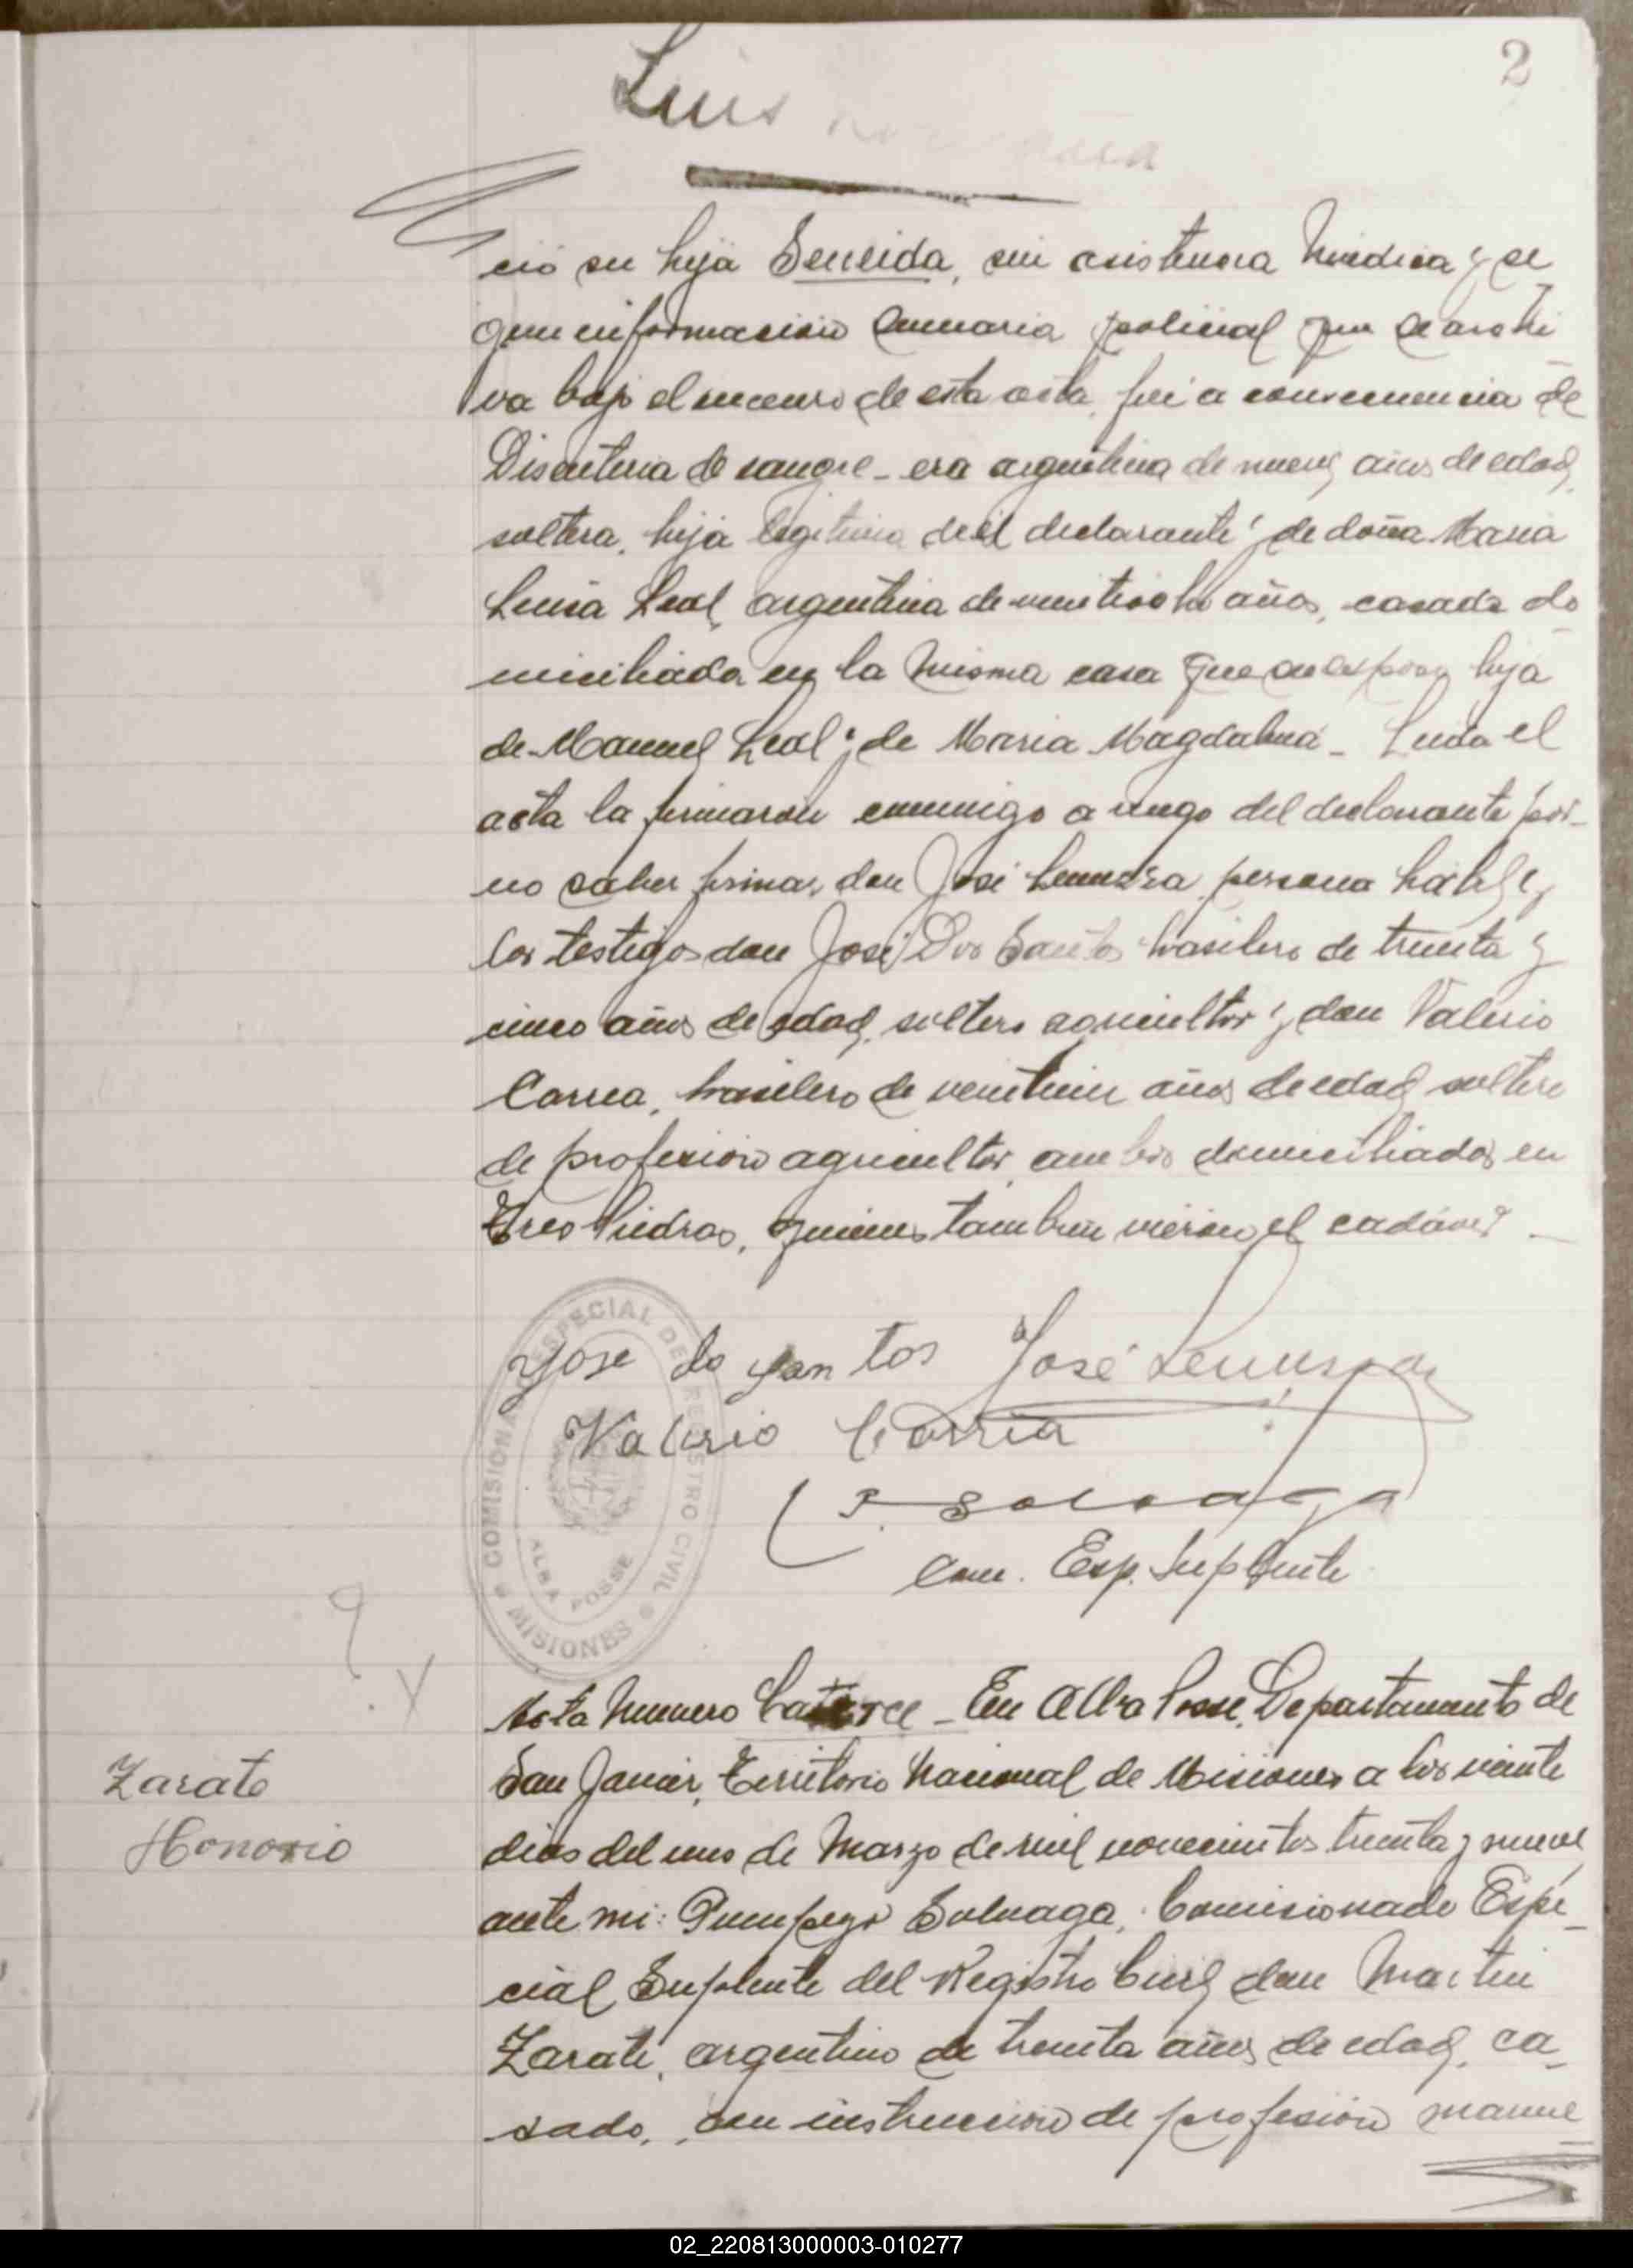 2
Luis
ció su hija Seneida, sin asistencia Medica y se
gun informacion sumaria policial que se archi
va bajo el numero de esta acta, fué a consecuencia de
Disenteria de sangre - era argentina de nueve años de edad,
soltera, hija legitima del declarante y de doña Maria
Luisa Leal, argentina de veintiocho años, casada do
miciliada en la misma casa que su esposo, hija
de Manuel Leal y de Maria Magdalena - Leida el
acta la firmaron conmigo a ruego del declarante por
no saber firmar, don José persona habil y
los testigos don José Dos Santos brasilero de treinta y
cinco años de edad, soltero agricultor y don Valerio
Correa, brasilero de años de edad, soltero
de profesion agricultor, ambos domiciliados en
Tres Piedras, quienes tambien vieron el cadáver -
Jose do Santos José
Valerio Corria
P. Soluaga
Com. Esp. Suplente
COMISIONADO ESPECIAL DEL REGISTRO CIVIL
ALBA POSSE
MISIONES
Acta Numero Catorce - En Alba Posse, Departamento de
San Javier, Territorio Nacional de Misiones a los veinte
Zarate
dias del mes de Marzo de mil novecientos treinta y nueve
Honorio
ante mi: Pompeyo Soluaga, Comisionado Espe
cial Suplente del Registro Civil, don Martin
Zarate, argentino de treinta años de edad, ca
sado, con instruccion de profesion
02_220813000003-010277